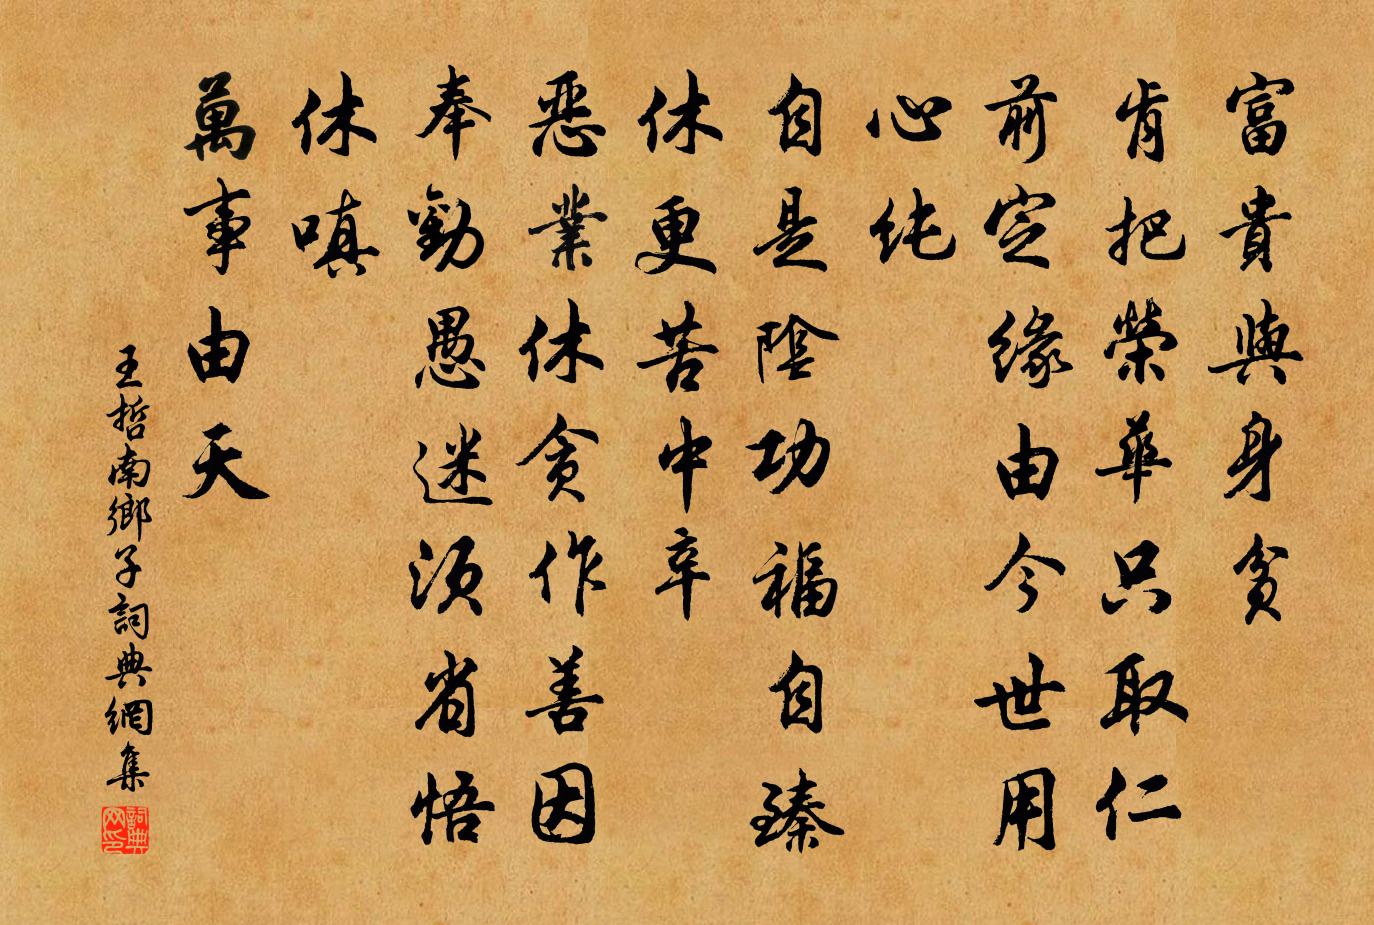 富貴與身貧
肯把榮華只取仁
前定緣由今世用
心纯
自是陰功福自臻
休更苦中辛
惡業休貪作善因
奉勸愚迷須省悟
休嗔
萬事由天
王哲南鄉子詞典網集
詞典网印